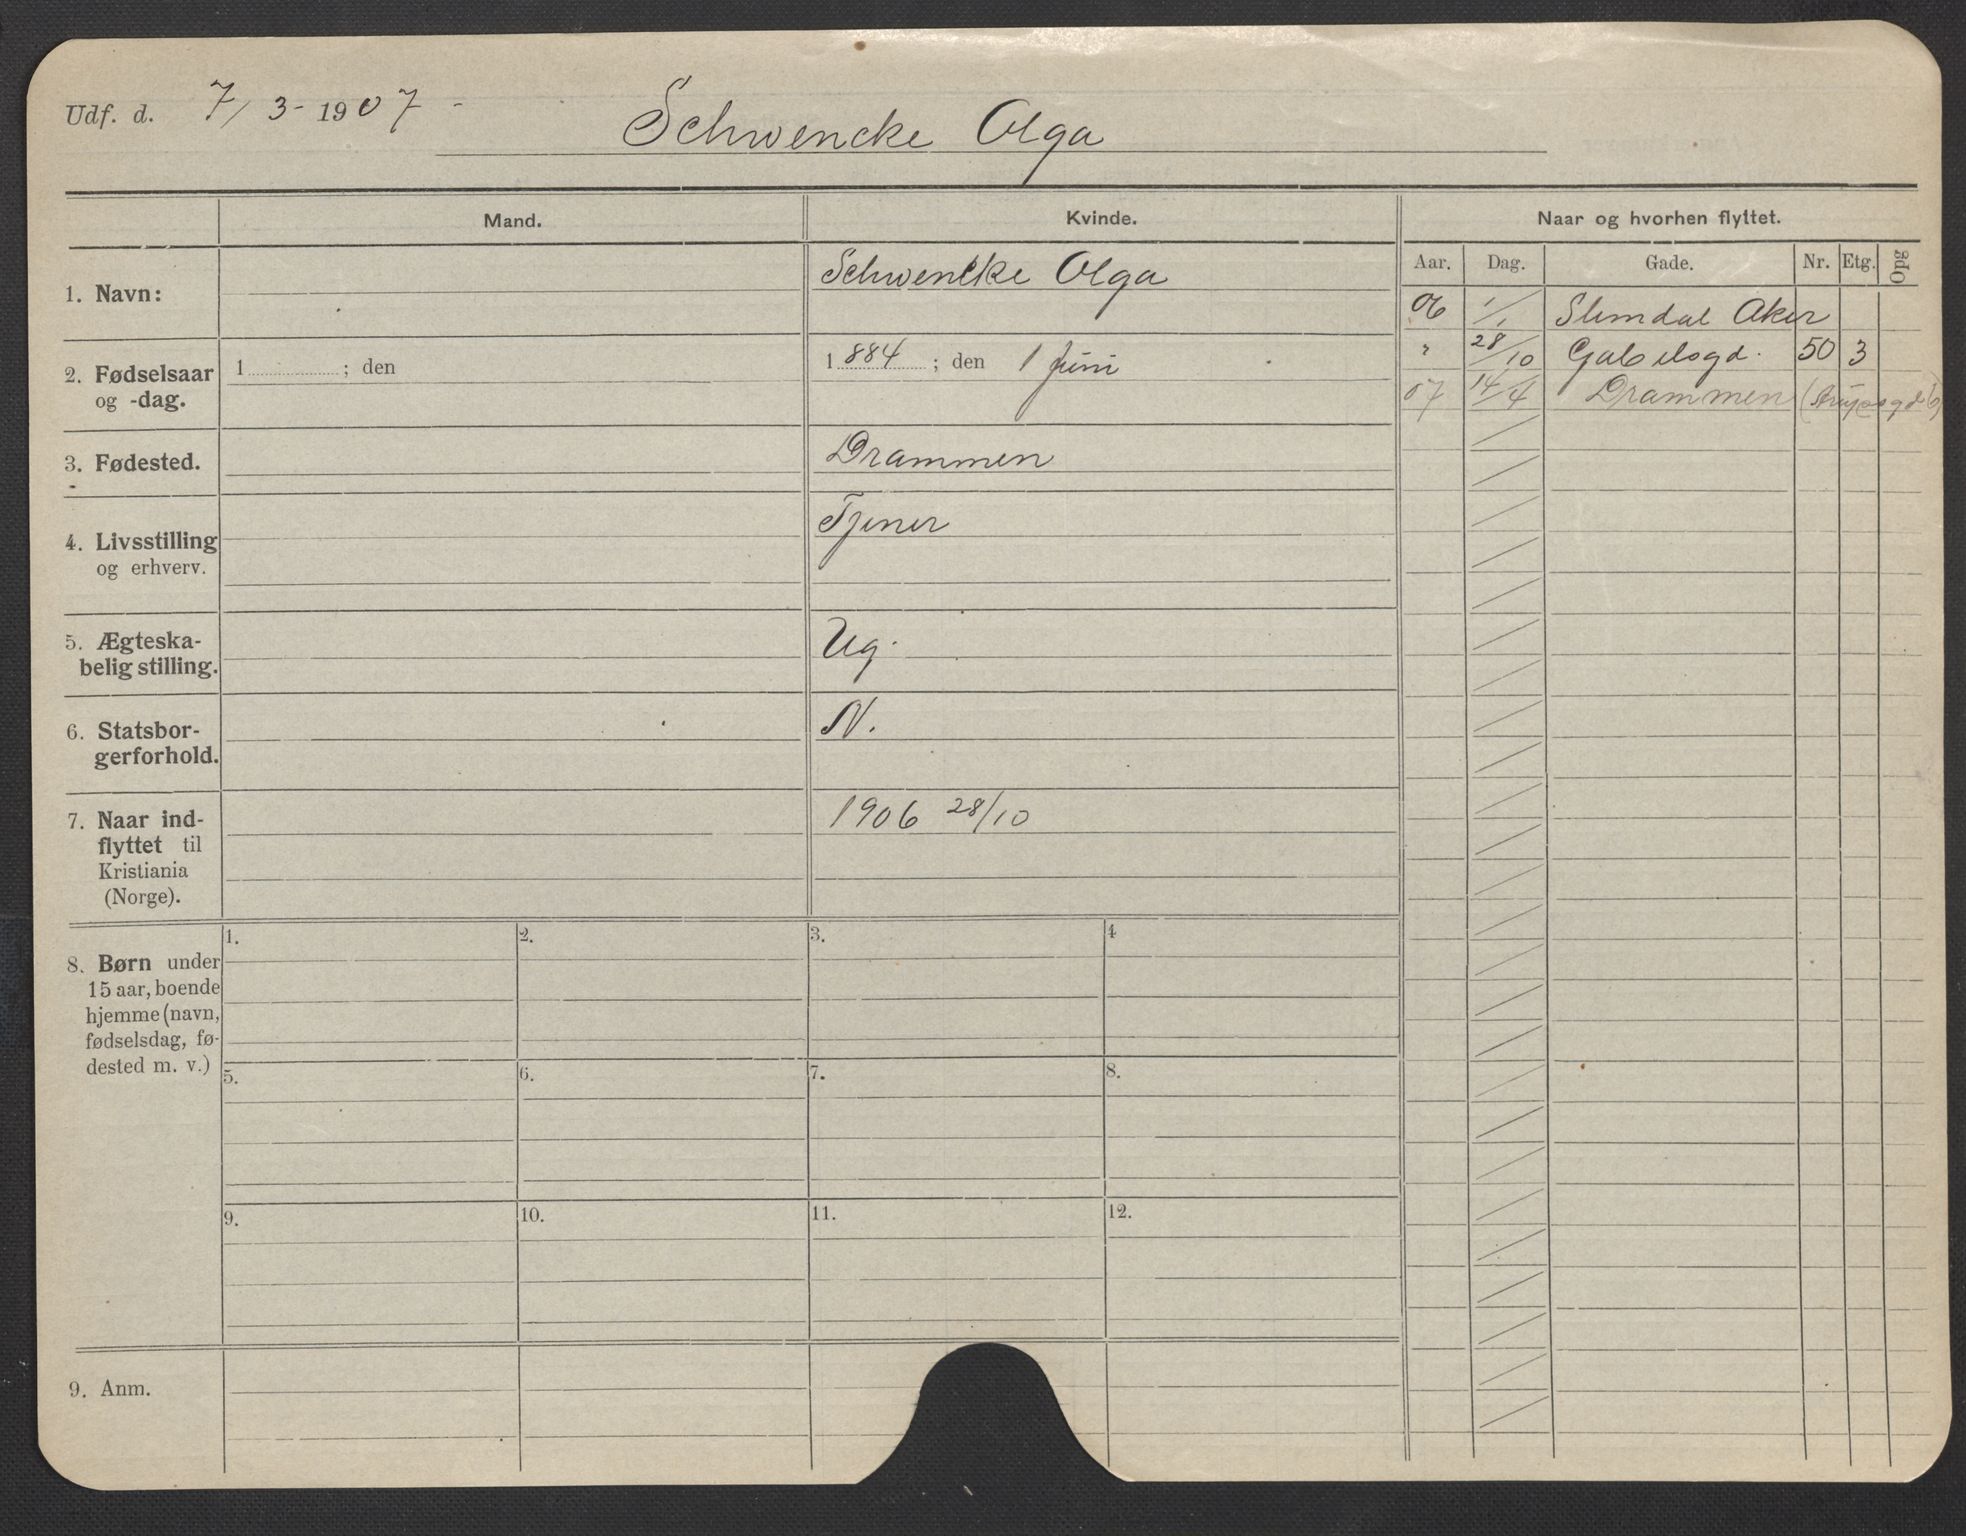 Udf. d. 7/3-1907-
Schwencke Olga
Mand.
Kvinde.
Naar og hvorhen flyttet.
Aar. Dag. Gade. Nr. Etg. Opg
1. Navn:
Schwencke Olga
06 1/1 Slemdal Aker
2. Fødselsaar
og -dag.
1 ; den
1884 ; den 1 Juni
" 28/10 Gabelsgd. 50 3
07 14/4 Drammen
3. Fødested.
Drammen
4. Livsstilling
og erhverv.
Tjener
5. Ægteska-
belig stilling.
Ug.
6. Statsbor-
gerforhold.
N.
7. Naar ind-
flyttet til
Kristiania
(Norge).
1906 28/10
8. Børn under
15 aar, boende
hjemme (navn,
fødselsdag, fø-
dested m. v.)
1. 2. 3. 4
5. 6. 7. 8.
9. 10. 11. 12.
9. Anm.